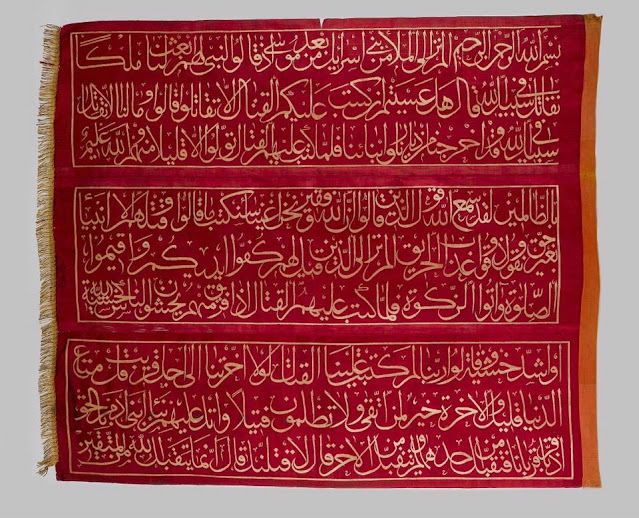 بسم الله الرحمن الرحيم الم تر الى الملا من بني اسرايل من بعد موسى اذ قالوا لنبي لهم ابعث لنا ملكا
نقاتل في سبيل الله قال هل عسيتم ان كتب عليكم القتال الا تقاتلوا قالوا وما لنا الا نقاتل
في سبيل الله وقد اخرجنا من ديارنا وابنائنا فلما كتب عليهم القتال تولوا الا قليلا منهم والله عليم
بالظالمين لقد سمع الله قول الذين قالوا ان الله فقير ونحن اغنياء سنكتب ما قالوا وقتلهم الانبياء
بغير حق ونقول ذوقوا عذاب الحريق الم تر الى الذين قيل لهم كفوا ايديكم واقيموا
الصلوة واتوا الزكوة فلما كتب عليهم القتال اذا فريق منهم يخشون الناس كخشية الله
او اشد خشية وقالوا ربنا لم كتبت علينا القتال لولا اخرتنا الى اجل قريب قل متاع
الدنيا قليل والاخرة خير لمن اتقى ولا تظلمون فتيلا واتل عليهم نبا ابني ادم بالحق
اذ قربا قربانا فتقبل من احدهما ولم يتقبل من الاخر قال لاقتلنك قال انما يتقبل الله من المتقين